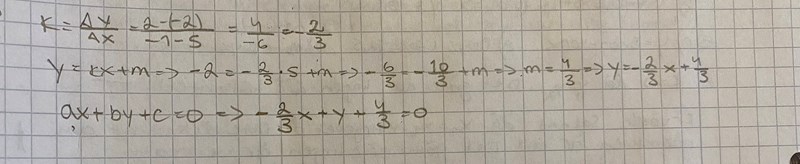 K = Δy/Δx = 2-(-2)/-1-5 = 4/-6 = -2/3
y = kx + m => -2 = -2/3 · 5 + m => -6/3 = -10/3 + m => m = 4/3 => y = -2/3x + 4/3
ax + by + c = 0 => -2/3x + y + 4/3 = 0